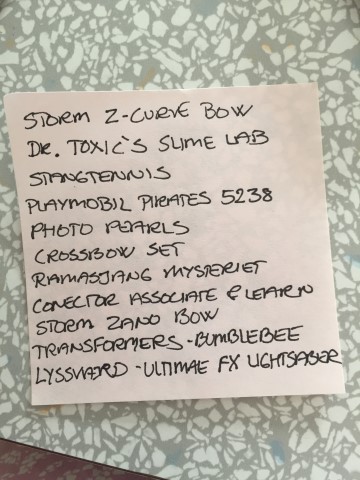 STORM Z-CURVE BOW
DR. TOXIC`S SLIME LAB
STANGTENNIS
PLAYMOBIL PIRATES 5238
PHOTO PEARLS
CROSSBOW SET
RAMASJANG MYSTERIET
CONECTOR ASSOCIATE & LEARN
STORM ZANO BOW
TRANSFORMERS-BUMBLEBEE
LYSSVÆRD -ULTIMAE FX LIGHTSABER